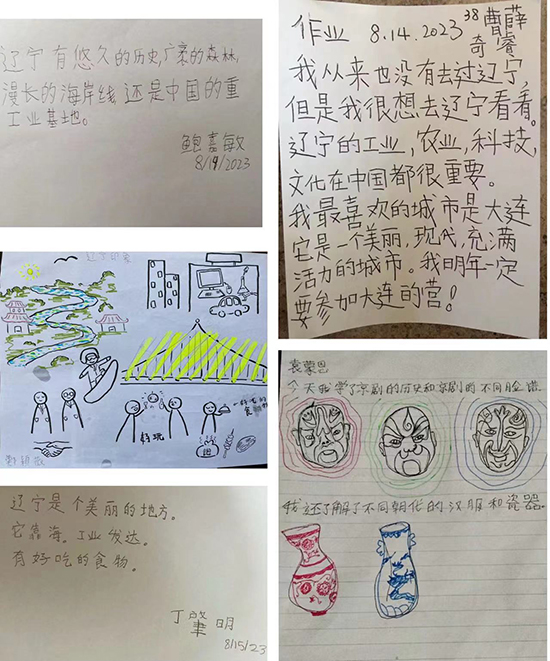 辽宁有悠久的历史,广袤的森林,
漫长的海岸线,还是中国的重
工业基地。
鲍嘉敏
8/14/2023
作业 8.14.2023 38 曹奇 薛睿
我从来也没有去过辽宁,
但是我很想去辽宁看看。
辽宁的工业,农业,科技,
文化在中国都很重要。
我最喜欢的城市是大连
它是一个美丽,现代,充满
活力的城市。我明年一定
要参加大连的营!
辽宁印象
好玩
辽宁是个美丽的地方。
它靠海。工业发达。
有好吃的食物。
丁肇明
8/15/23
袁蒙恩
今天我学了京剧的历史和京剧的不同脸谱。
我还了解了不同朝代的汉服和瓷器。